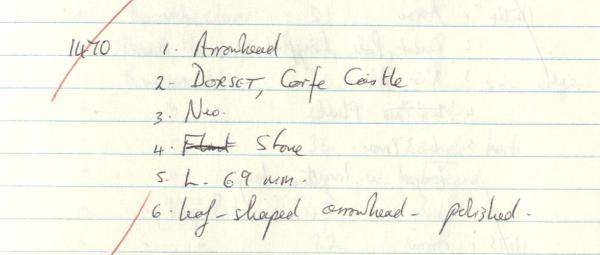 1470 1. Arrowhead
2. DORSET, Corfe Castle
3. Neo.
4. Flint Stone
5. L. 69 mm.
6. leaf-shaped arrowhead - polished.